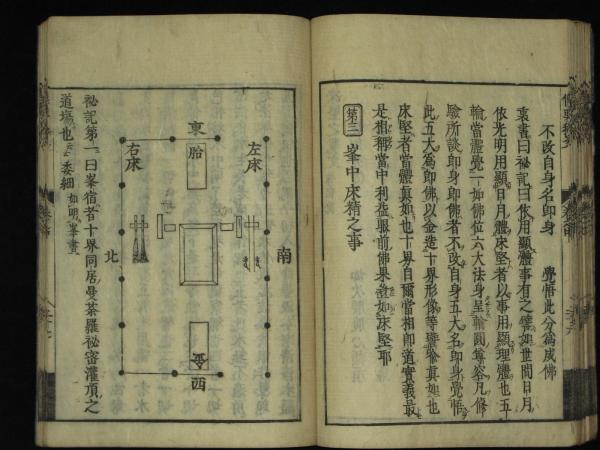 不改自身名即身　覺悟此分爲成佛
裏書曰祕記曰依用顯體事有之譬如世間日月
依光明用顯日月體床堅者以事用顯理體也五
輪當體覺一如佛位六大法身呈輪圓尊容凡修
驗所談即身即佛者不改自身五大名即身覺悟
此五大爲即佛以金造十界形像等譬喻真如也
床堅者當體真如也十界自爾當相即道實義最
是相稱當中利益眼前佛果證如床堅耶
第三　峯中床精之事
東
胎
左床
右床
南
北
西
祕記第一曰峯宿者十界同居曼荼羅祕密灌頂之
道塲也云云委細如明峯畫